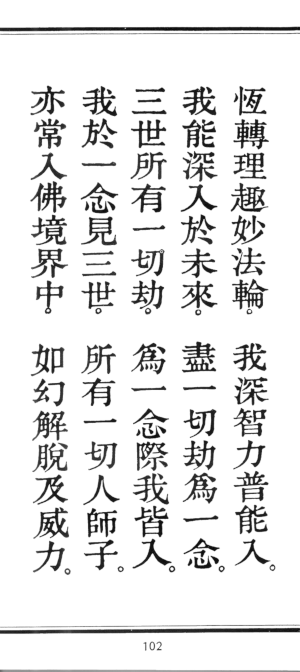 恆轉理趣妙法輪。我深智力普能入。
我能深入於未來。盡一切劫爲一念。
三世所有一切劫。爲一念際我皆入。
我於一念見三世。所有一切人師子。
亦常入佛境界中。如幻解脫及威力。
102